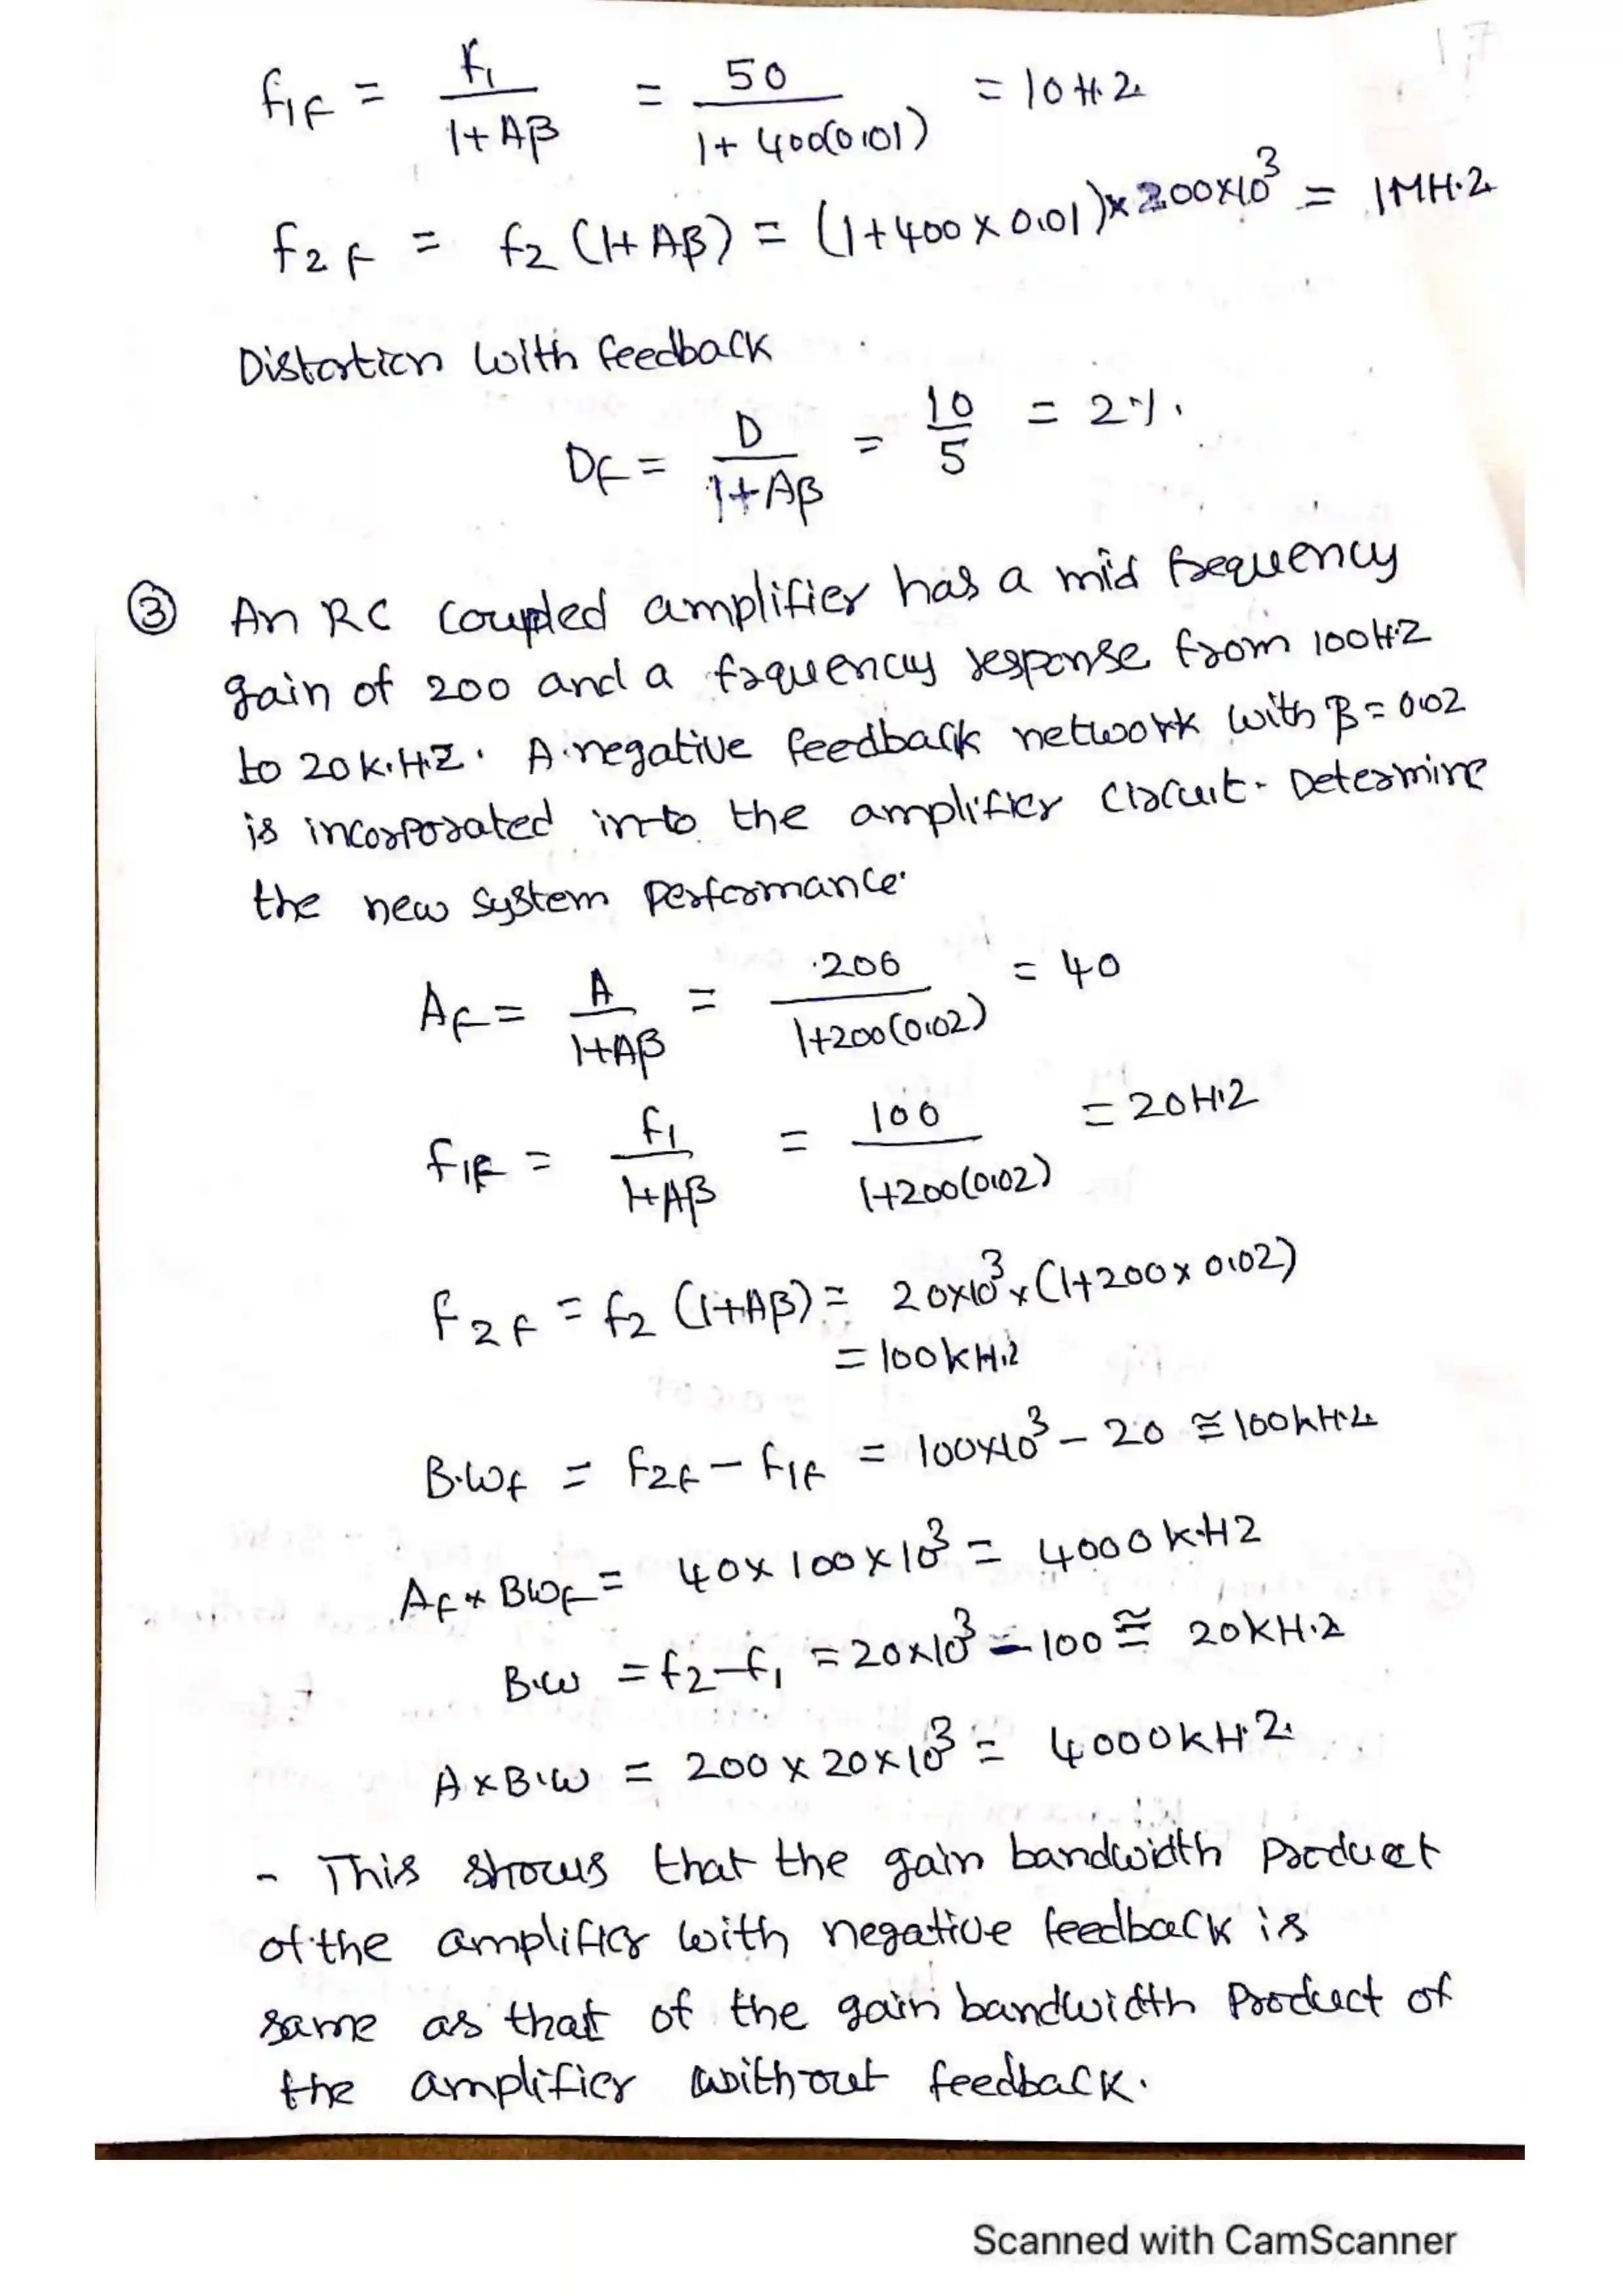 f1F = f1 / 1+Aβ = 50 / 1+400(0.01) = 10H.Z
f2F = f2 (1+Aβ) = (1+400×0.01)×200×10³ = 1MH.Z
Distortion with feedback
DF = D / 1+Aβ = 10 / 5 = 2%.
③ An RC coupled amplifier has a mid frequency
gain of 200 and a frquency response from 100H.Z
to 20K.H.Z. A negative feedback network with β = 0.02
is incorporated into the amplifier circuit. Determine
the new system performance.
AF = A / 1+Aβ = 200 / 1+200(0.02) = 40
f1F = f1 / 1+Aβ = 100 / 1+200(0.02) = 20H.Z
F2F = f2 (1+Aβ) = 20×10³×(1+200×0.02)
= 100KH.Z
B.WF = f2F - f1F = 100×10³ - 20 ≅ 100KH.Z
AF × BWF = 40×100×10³ = 4000K.HZ
B.W = f2-f1 = 20×10³ - 100 ≅ 20KH.Z
A×B.W = 200×20×10³ = 4000KH.Z.
- This shows that the gain bandwidth product
of the amplifier with negative feedback is
same as that of the gain bandwidth product of
the amplifier without feedback.
Scanned with CamScanner